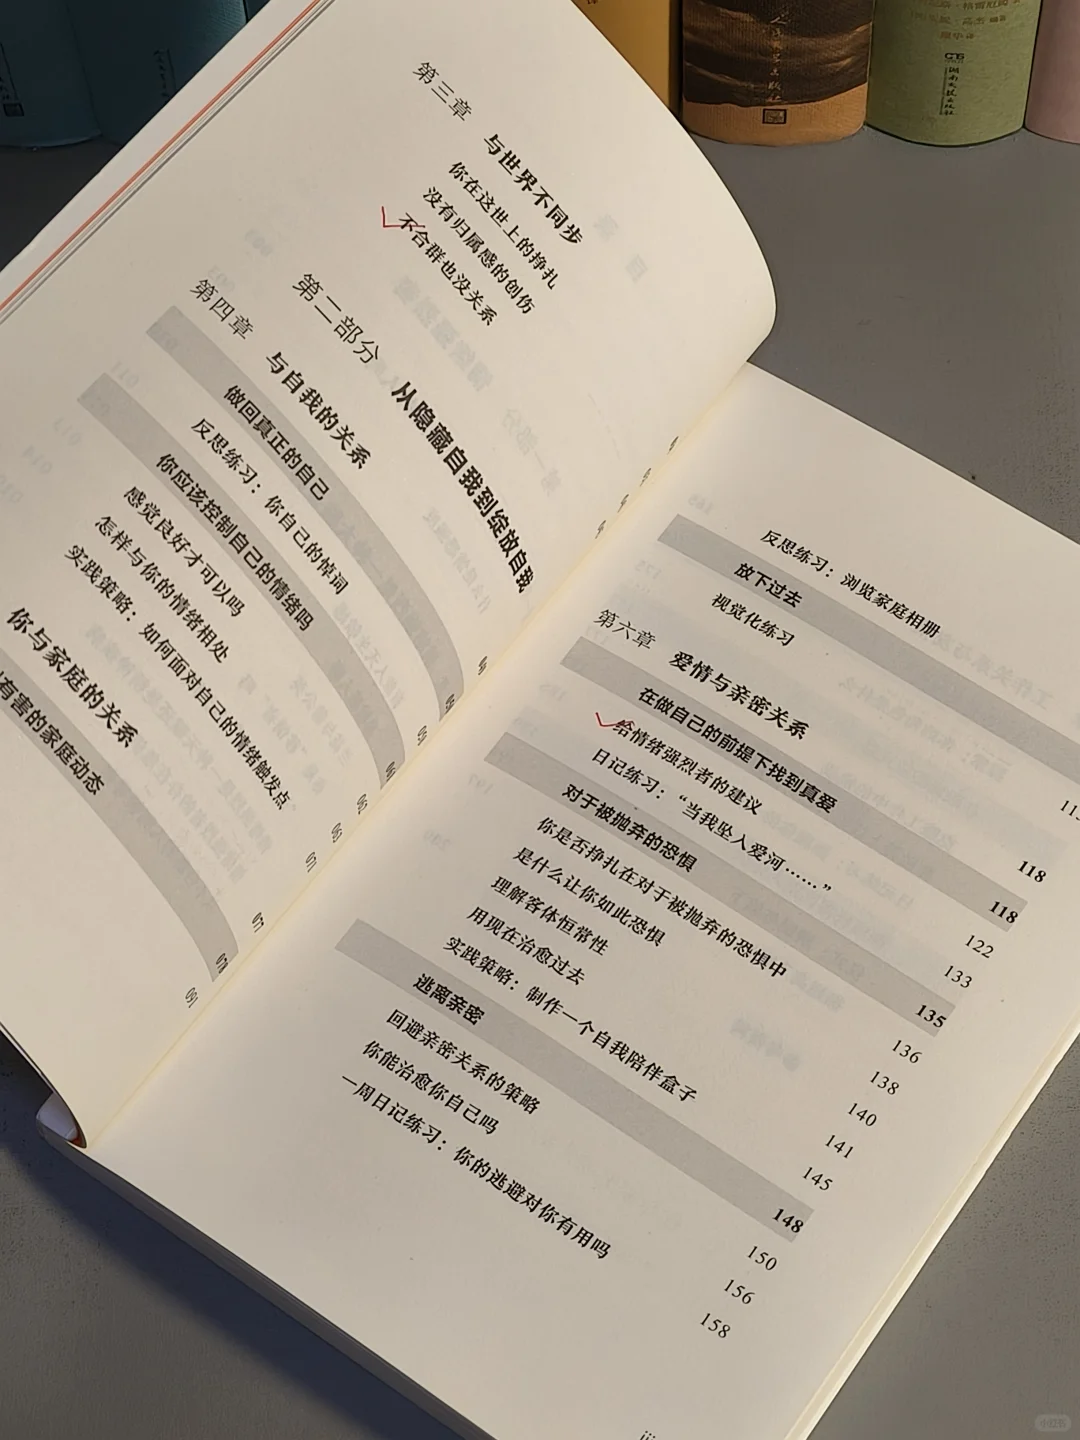 第三章 与世界不同步
你在这世上的挣扎
没有归属感的创伤
不合群也没关系
第二部分 从隐藏自我到绽放自我
第四章 与自我的关系
做回真正的自己
反思练习：你自己的悼词
你应该控制自己的情绪吗
感觉良好才可以吗
怎样与你的情绪相处
实践策略：如何面对自己的情绪触发点
你与家庭的关系
有害的家庭动态
071
077
078
091
反思练习：浏览家庭相册
放下过去
视觉化练习
第六章 爱情与亲密关系 118
在做自己的前提下找到真爱 118
给情绪强烈者的建议 122
日记练习：“当我坠入爱河……” 133
对于被抛弃的恐惧 135
你是否挣扎在对于被抛弃的恐惧中 136
是什么让你如此恐惧 138
理解客体恒常性 140
用现在治愈过去 141
实践策略：制作一个自我陪伴盒子 145
逃离亲密 148
回避亲密关系的策略 150
你能治愈你自己吗 156
一周日记练习：你的逃避对你有用吗 158
小红书